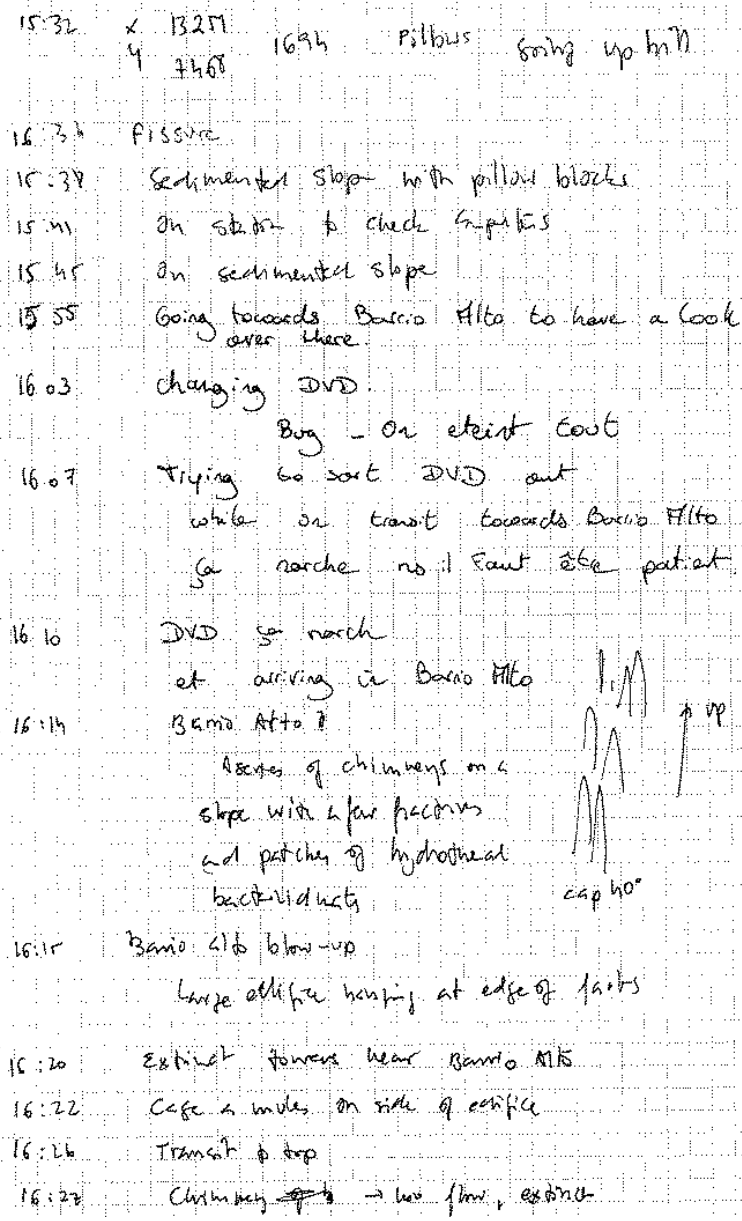 15:32 x 13251 1694 Pillows going up hill
y 7468
fissure
Sedimented slope with pillow blocks
On station to check
15 45 On sedimented slope
15 55 Going towards Barrio Alto to have a look
over there.
16 03 changing DVD.
Bug - On eteint tout
16 07 Trying to sort DVD out
while on transit towards Barrio Alto
ça marche no il faut être patient
16 10 DVD ça march
et arriving in Barrio Alto
16:14 Barrio Alto ?
up
A series of chimneys on a
slope with a few fractures
and patches of hydrothermal
cap 40°
16:15 Barrio alto blow-up
Large edifice hanging at edge of faults
16:20 Extinct towers near Barrio Alto
16:22 Cage a moules on side of edifice
16:26 Transit to top
16:27 Chimney → low flow, extinct